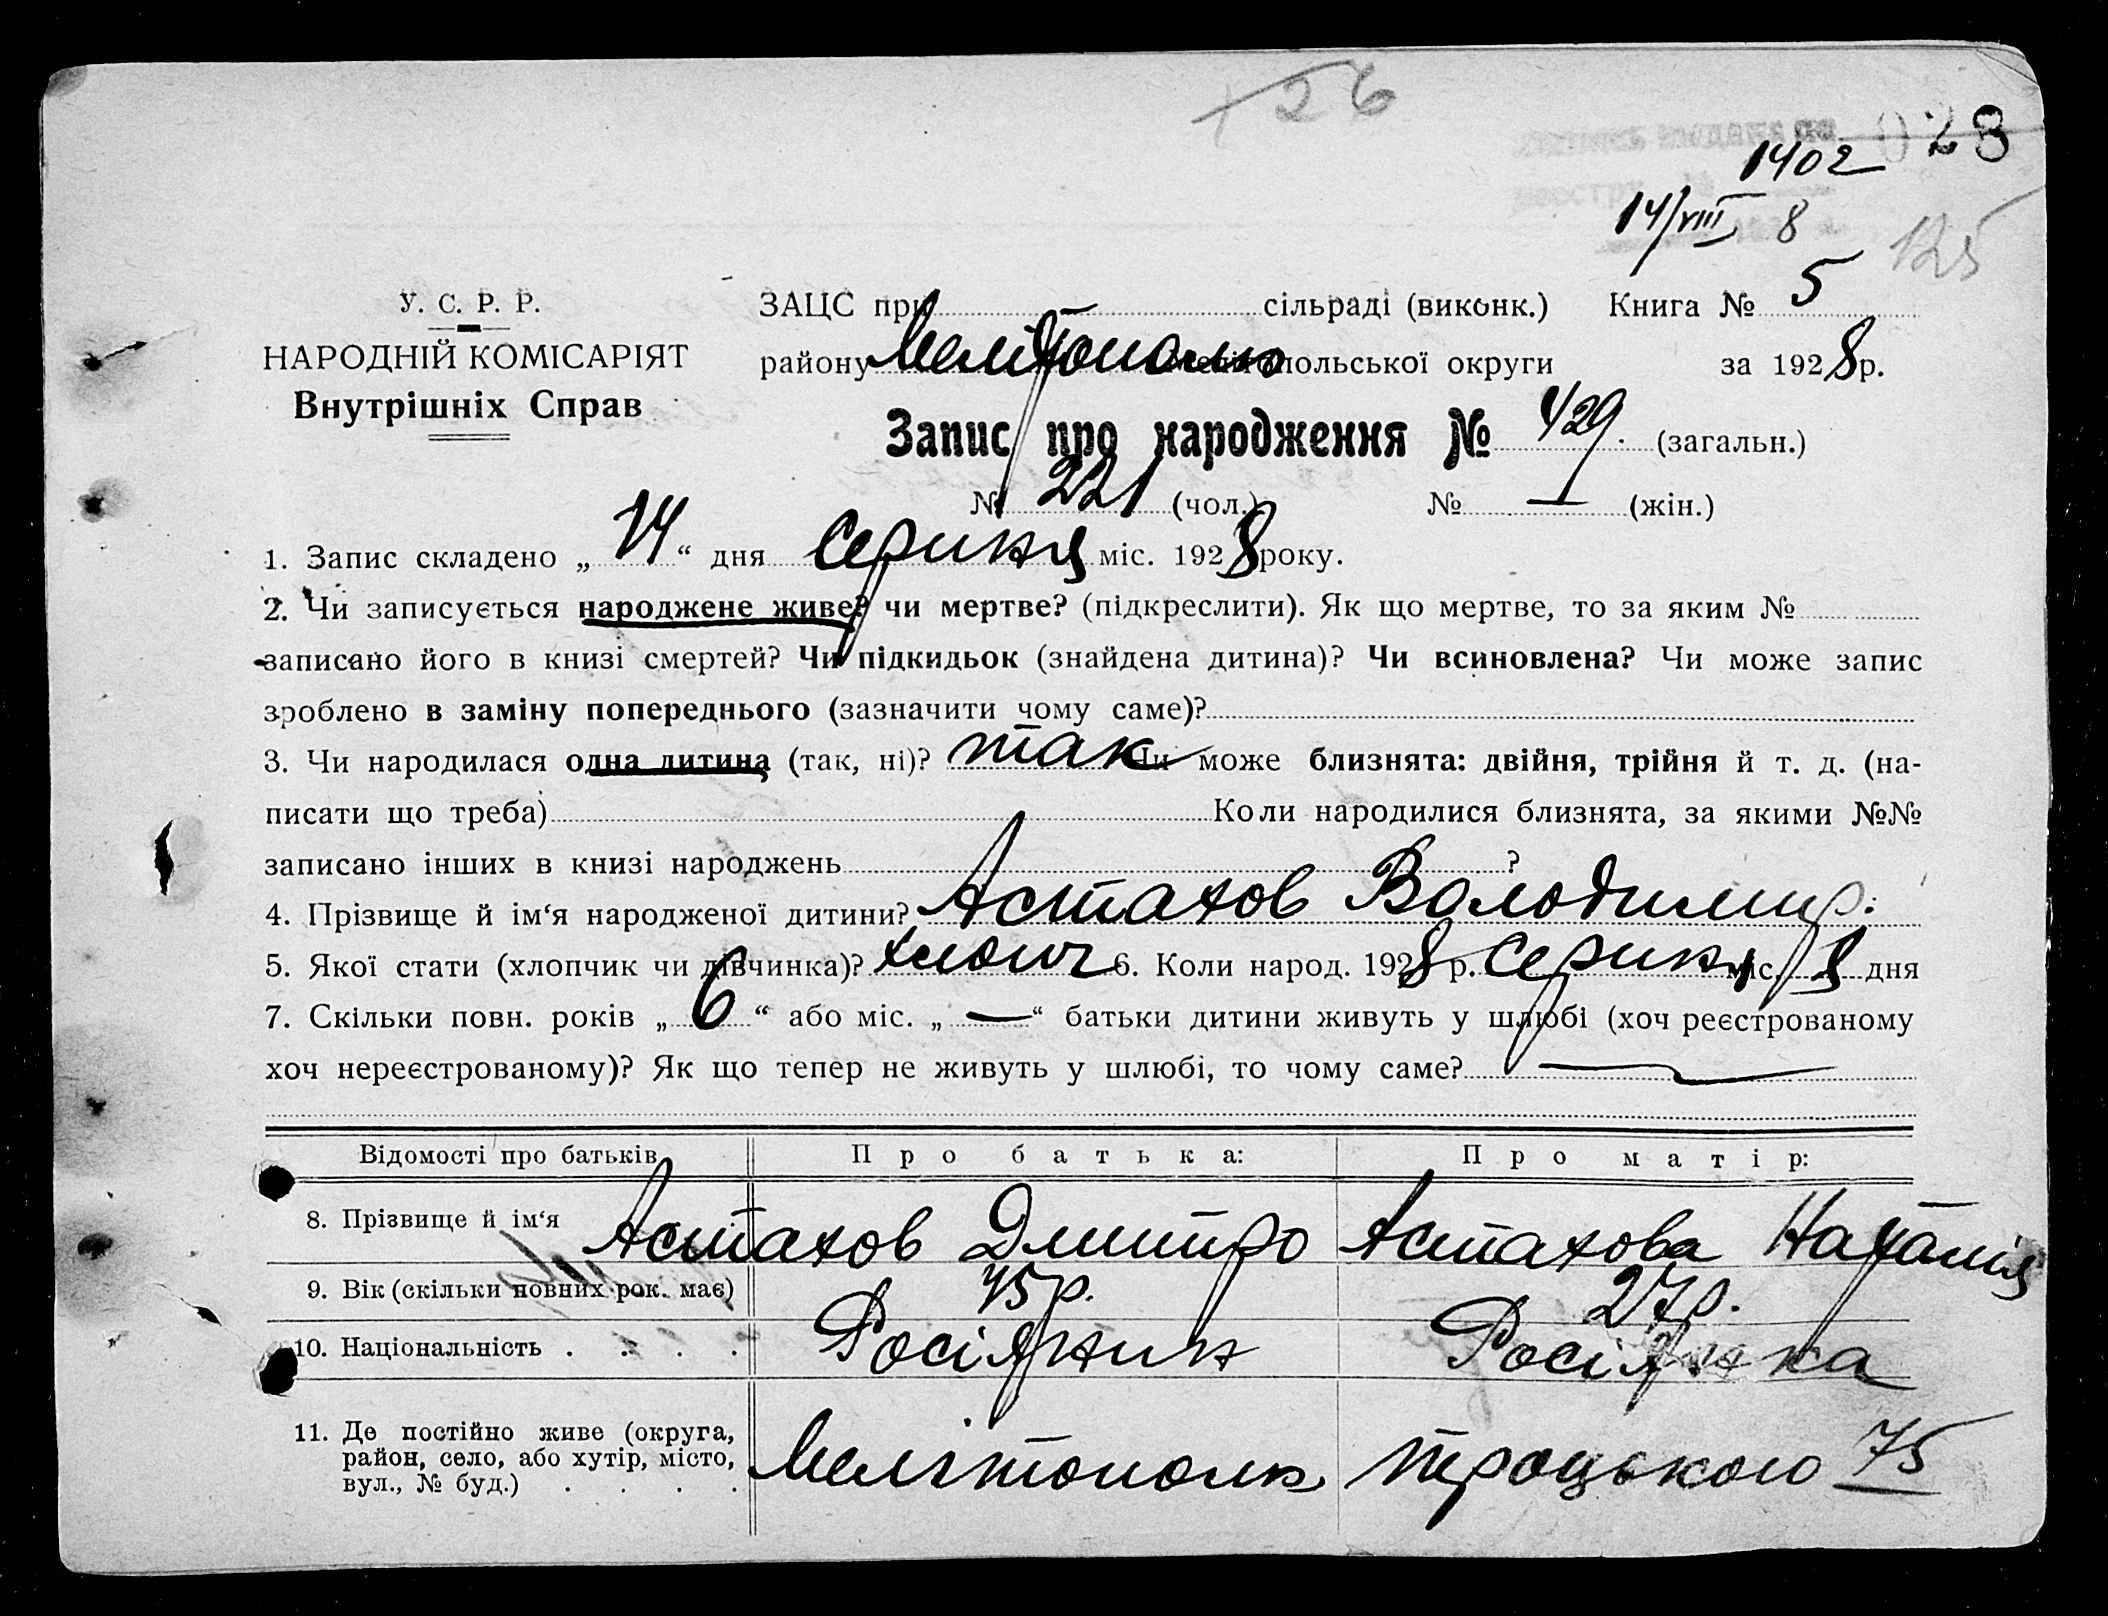 + 26
028
1402
14/VIII 8
125
У. С. Р. Р.
НАРОДНІЙ КОМІСАРІЯТ
Внутрішніх Справ
ЗАЦС при сільраді (виконк.) Книга № 5
району Мелітополю Мелітопольської округи за 1928 р.
Запис про народження № 429. (загальн.)
№ 221 (чол.) № — (жін.)
1. Запис складено „ 14 “ дня Серпня міс. 1928 року.
2. Чи записується народжене живе? чи мертве? (підкреслити). Як що мертве, то за яким №
записано його в книзі смертей? Чи підкидьок (знайдена дитина)? Чи всиновлена? Чи може запис
зроблено в заміну попереднього (зазначити чому саме)?
3. Чи народилася одна дитина (так, ні)? так Чи може близнята: двійня, трійня й т. д. (на-
писати що треба) Коли народилися близнята, за якими №№
записано інших в книзі народжень ?
4. Прізвище й ім‘я народженої дитини? Астахов Володимир.
5. Якої стати (хлопчик чи дівчинка)? хлопч 6. Коли народ. 1928 р. Серпня міс. 8 дня
7. Скільки повн. років „ 6 “ або міс. „ — “ батьки дитини живуть у шлюбі (хоч реєстрованому
хоч нереєстрованому)? Як що тепер не живуть у шлюбі, то чому саме? —
Відомості про батьків Про батька: Про матір:
8. Прізвище й ім‘я Астахов Дмитро Астахова Наталія
9. Вік (скільки повних рок. має) 45 р. 27 р.
10. Національність . . . . Росіянин Росіянка
11. Де постійно живе (округа,
район, село, або хутір, місто,
вул., № буд.) . . . . Мелітополь Троцького 75